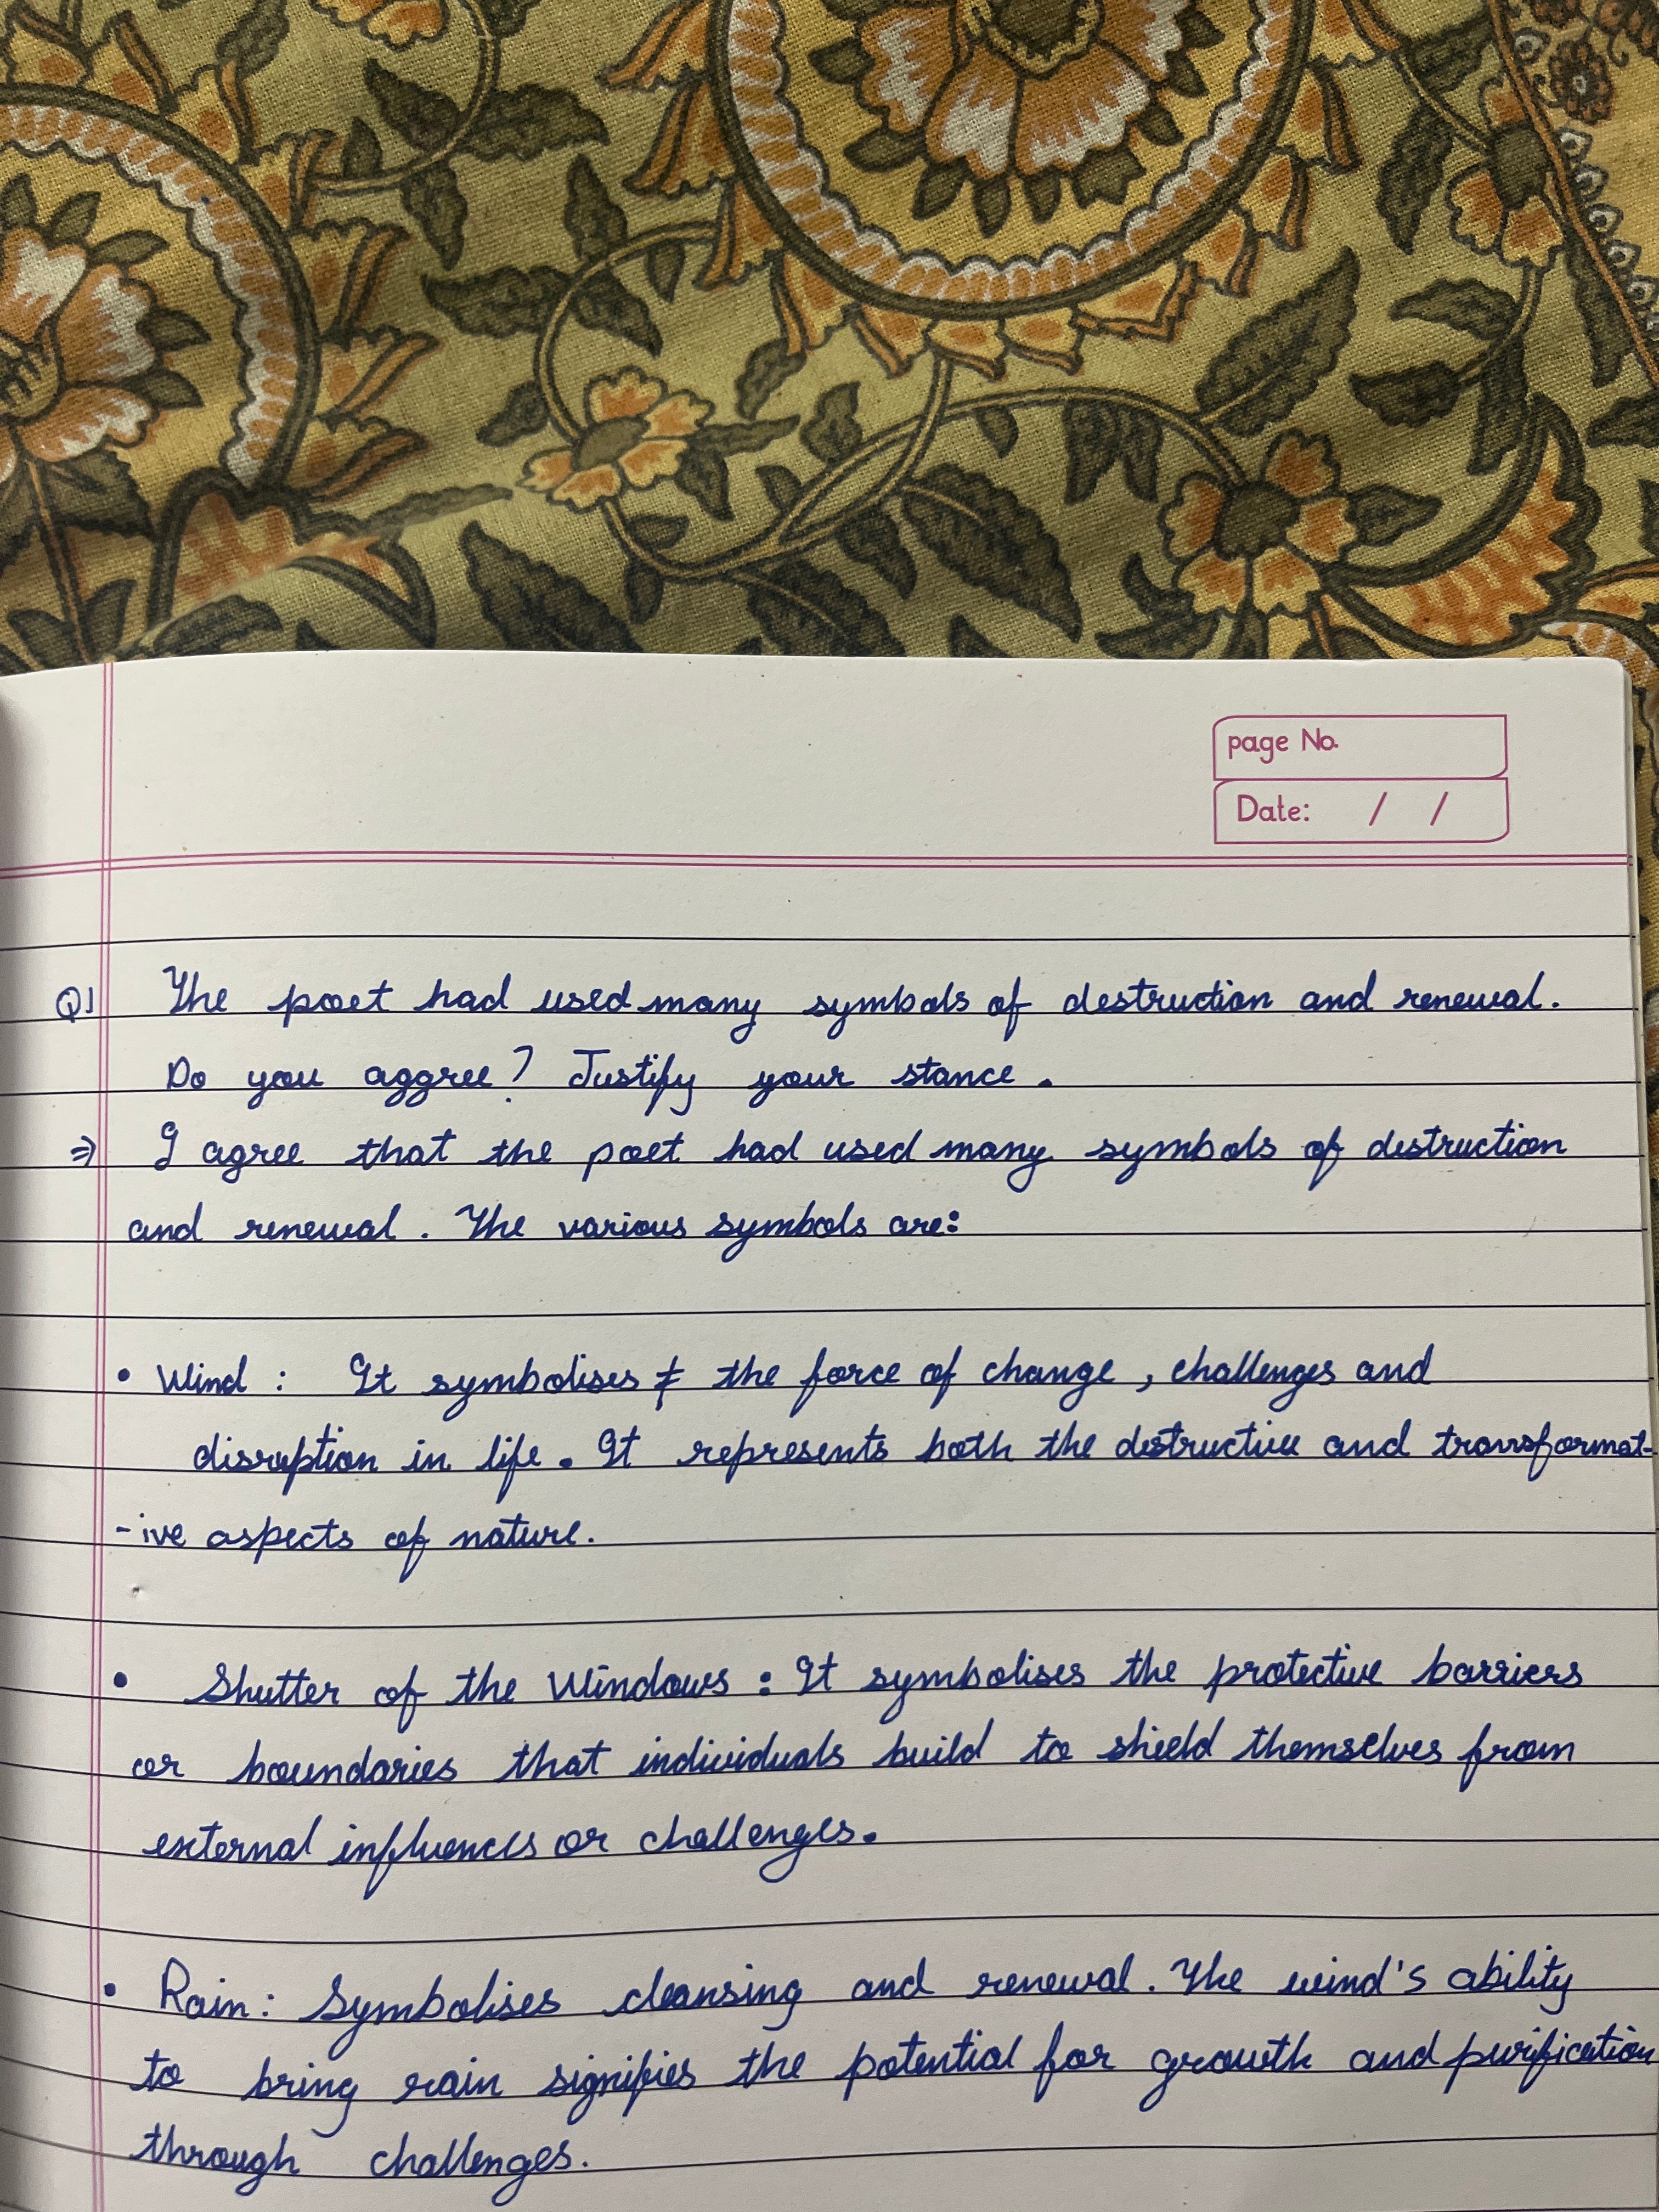 page No.
Date: / /
Q1 The poet had used many symbols of destruction and renewal.
Do you aggree? Justify your stance.
⇒ I agree that the poet had used many symbols of destruction
and renewal. The various symbols are:
• Wind : It symbolises the force of change, challenges and
disruption in life. It represents both the destructive and transformat-
-ive aspects of nature.
• Shutter of the Windows : It symbolises the protective barriers
or boundaries that individuals build to shield themselves from
external influences or challenges.
• Rain: Symbolises cleansing and renewal. The wind's ability
to bring rain signifies the potential for growth and purification
through challenges.